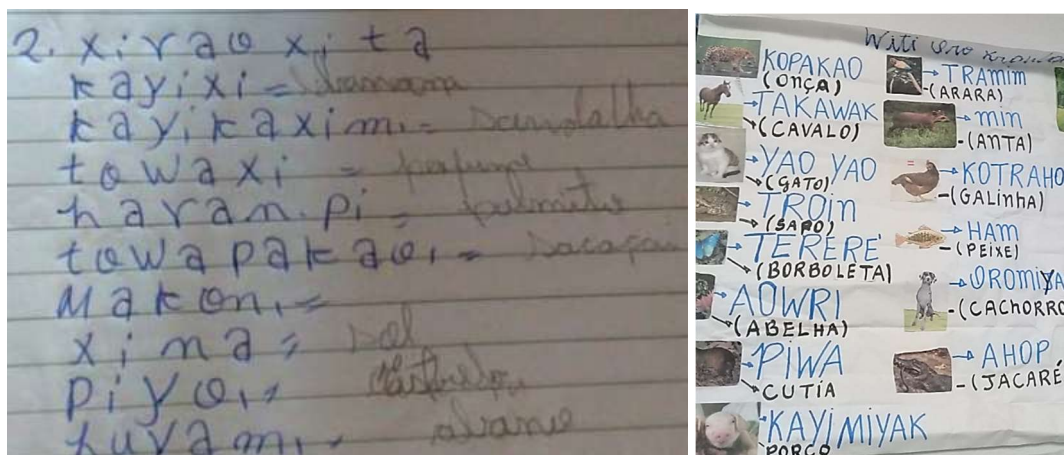 2. xiraoxi ta
kayixi =
kayikaximi =
towaxi = perfume
naram.pi = palmito
towapakaoi =
Makoni =
xina = sol
piyoi =
huvami =
Witi Oro
KOPAKAO
(ONÇA)
TAKAWAK
(CAVALO)
YAO YAO
(GATO)
TROIN
(SAPO)
TERERÉ
(BORBOLETA)
AOWRI
(ABELHA)
PIWA
CUTIA
KAYIMIYAK
PORCO
TRAMIM
(ARARA)
MIN
(ANTA)
KOTRAHO
(GALINHA)
HAM
(PEIXE)
OROMIYA
(CACHORRO
AHOP
(JACARÉ